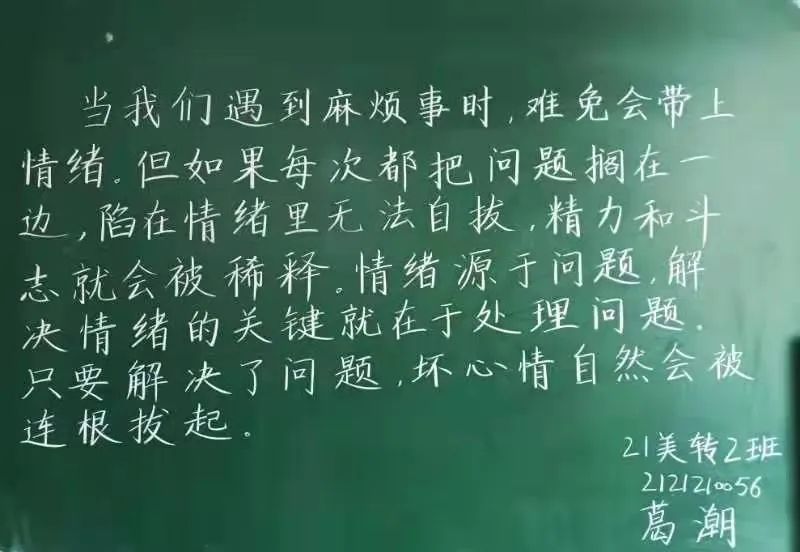 当我们遇到麻烦事时,难免会带上
情绪。但如果每次都把问题搁在一
边,陷在情绪里无法自拔,精力和斗
志就会被稀释。情绪源于问题,解
决情绪的关键就在于处理问题.
只要解决了问题,坏心情自然会被
连根拔起。
21美转2班
2121210056
葛潮